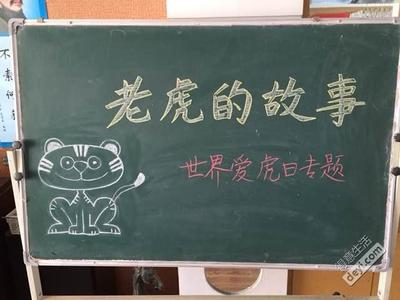 老虎的故事
世界爱虎日专题
不
素
得意生活
deyi.com